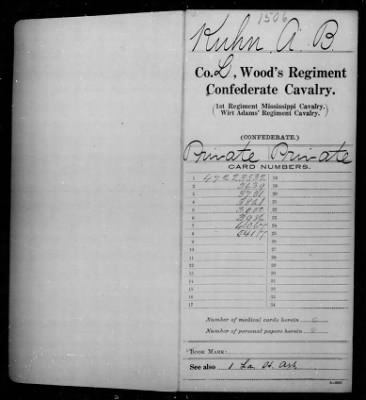 1506
Kuhn, A. B.
Co. L, Wood's Regiment
Confederate Cavalry.
(1st Regiment Mississippi Cavalry.
Wirt Adams' Regiment Cavalry.)
(CONFEDERATE.)
Private Private
CARD NUMBERS.
1 47223532 18
2 3639 19
3 3731 20
4 21
5 22
6 23
7 24
8 5417 25
9 26
10 27
11 28
12 29
13 30
14 31
15 32
16 33
17 34
Number of medical cards herein 0
Number of personal papers herein 0
BOOK MARK:
See also 1 La. H. Art.